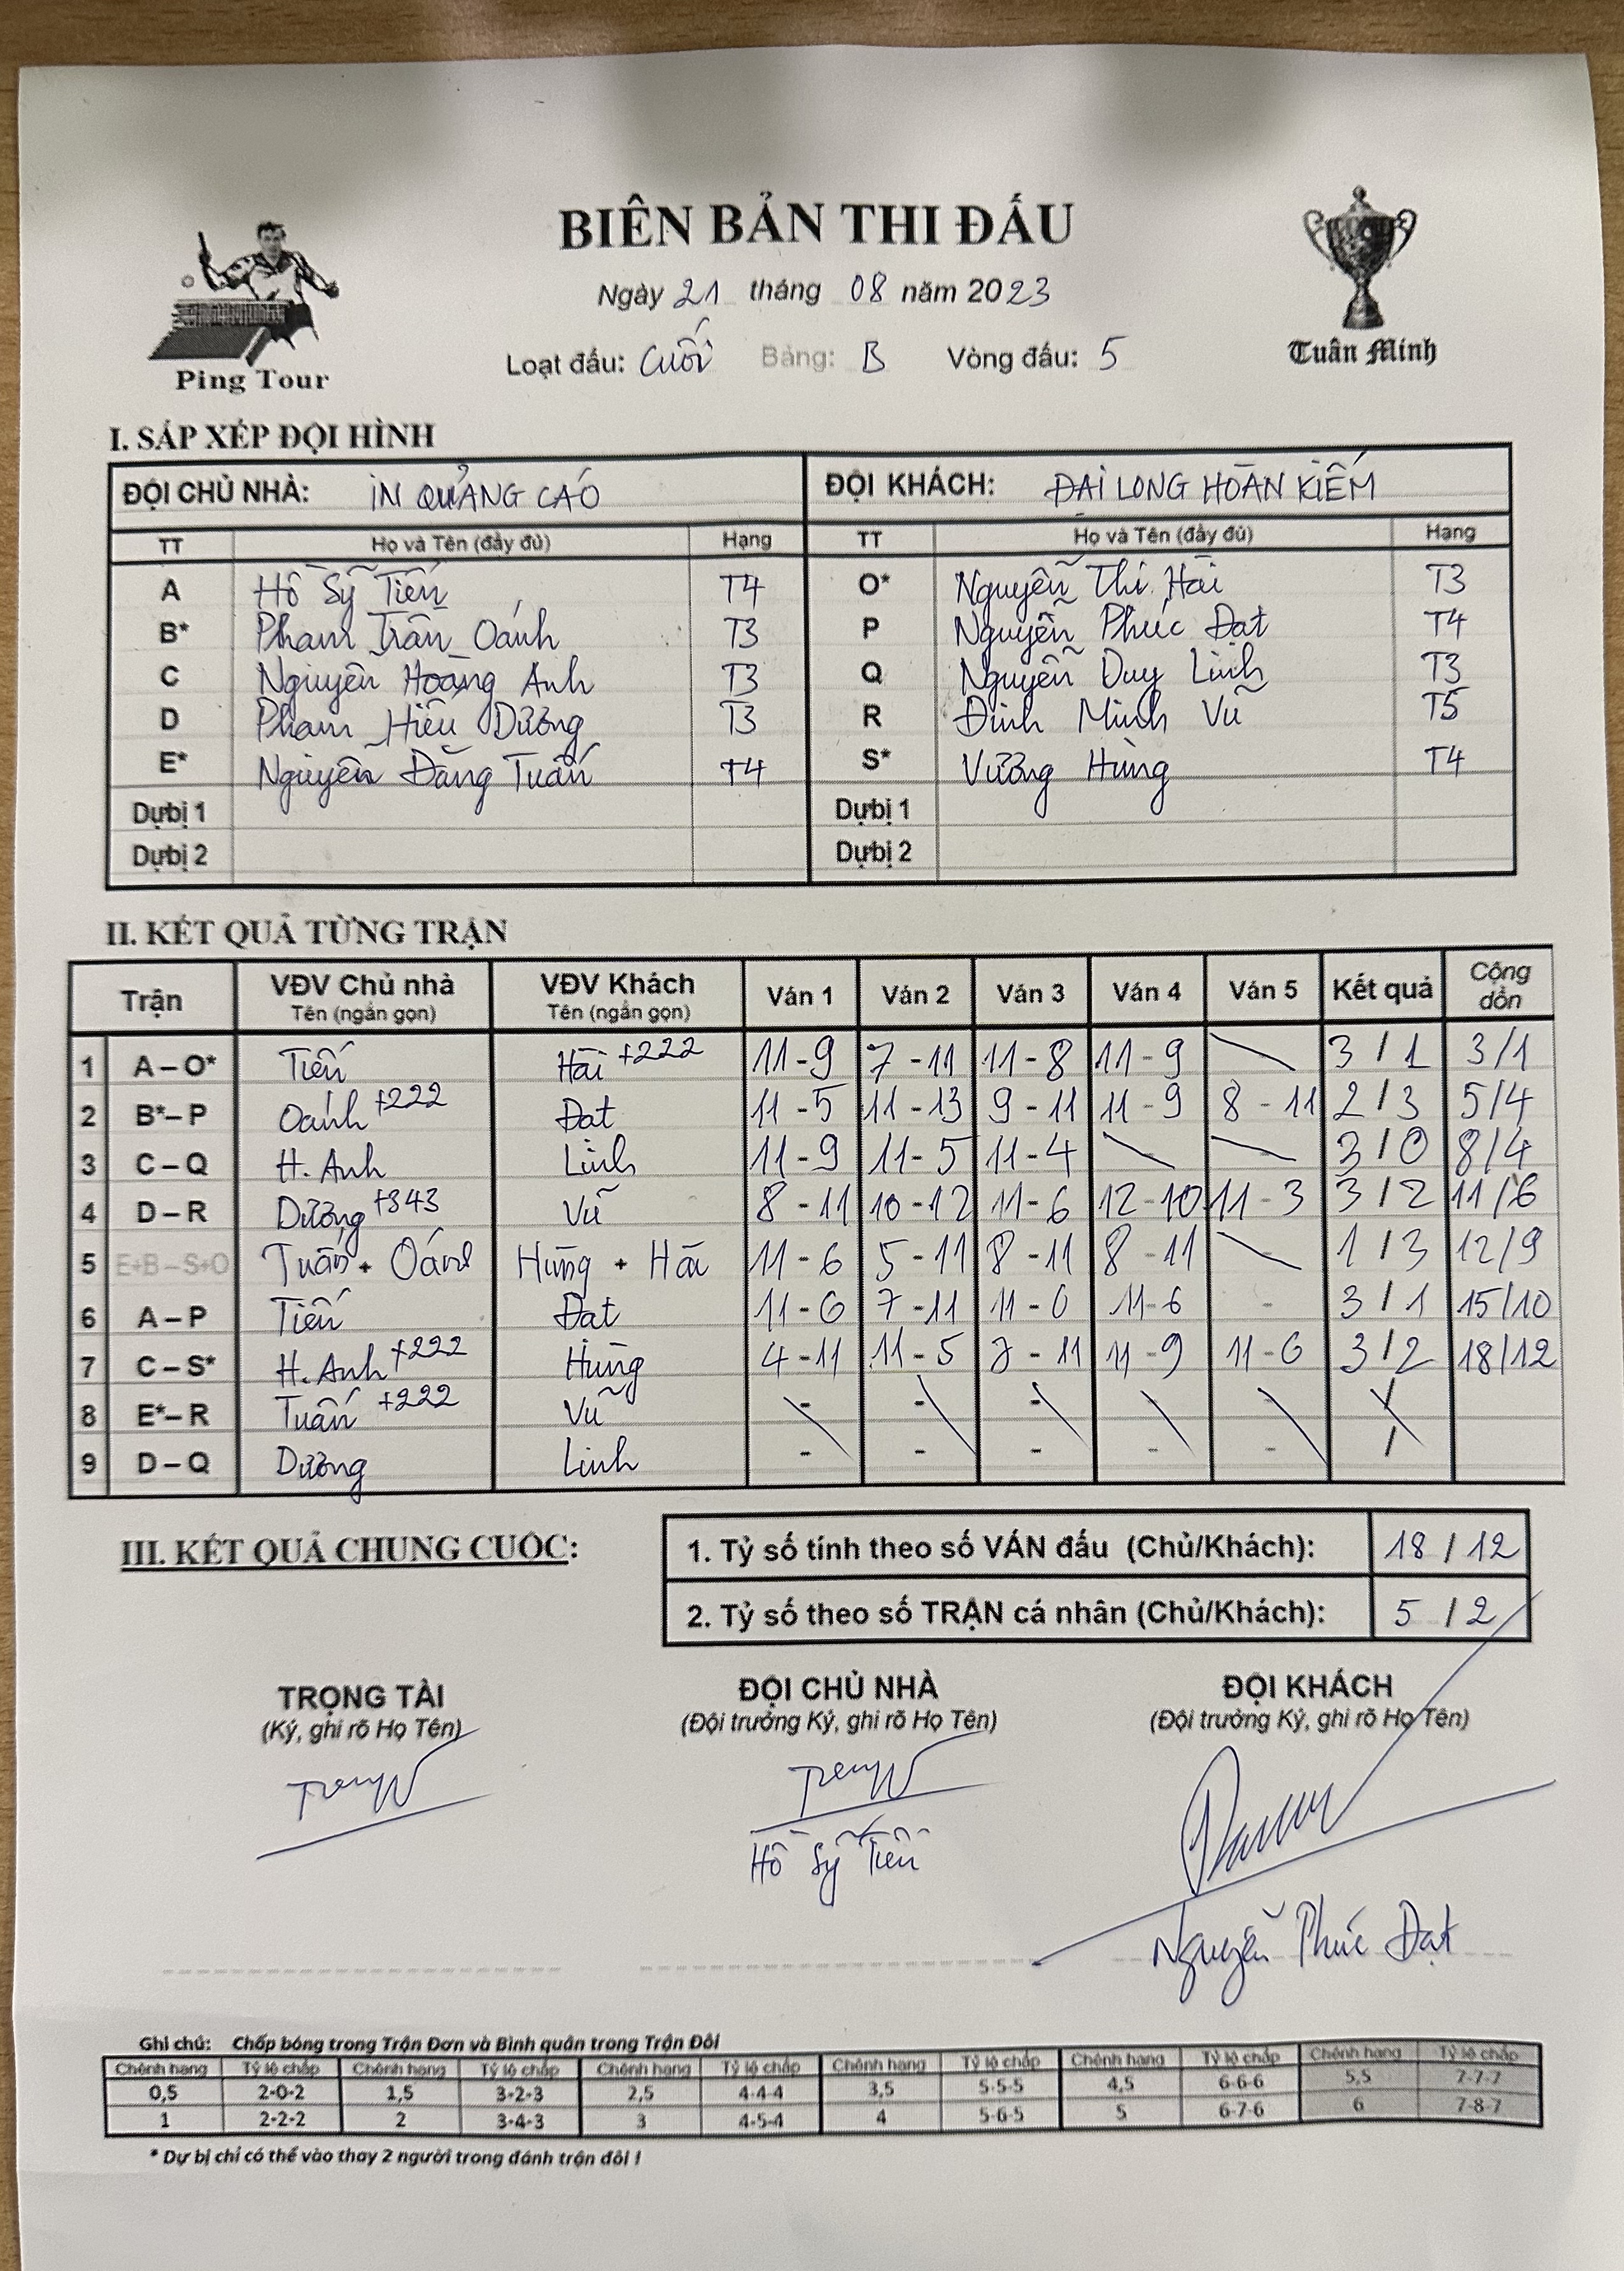 BIÊN BẢN THI ĐẤU
Ngày 21 tháng 08 năm 2023
Loạt đấu: Cuối Bảng: B Vòng đấu: 5
Ping Tour
Tuấn Minh
I. SẮP XẾP ĐỘI HÌNH
ĐỘI CHỦ NHÀ: IN QUẢNG CÁO ĐỘI KHÁCH: ĐẠI LONG HOÀN KIẾM
TT Họ và Tên (đầy đủ) Hạng TT Họ và Tên (đầy đủ) Hạng
A Hồ Sỹ Tiến T4 O* Nguyễn Thị Hải T3
B* Phạm Trần Oánh T3 P Nguyễn Phúc Đạt T4
C Nguyễn Hoàng Anh T3 Q Nguyễn Duy Linh T3
D Phạm Hiếu Dương T3 R Đinh Minh Vũ T5
E* Nguyễn Đăng Tuấn T4 S* Vương Hùng T4
Dự bị 1 Dự bị 1
Dự bị 2 Dự bị 2
II. KẾT QUẢ TỪNG TRẬN
Trận VĐV Chủ nhà VĐV Khách Ván 1 Ván 2 Ván 3 Ván 4 Ván 5 Kết quả Cộng dồn
Tên (ngắn gọn) Tên (ngắn gọn)
1 A – O* Tiến Hải +222 11 - 9 7 - 11 11 - 8 11 - 9 - 3 / 1 3/1
2 B* – P Oánh +222 Đạt 11 - 5 11 - 13 9 - 11 11 - 9 8 - 11 2 / 3 5/4
3 C – Q H. Anh Linh 11 - 9 11 - 5 11 - 4 - - 3 / 0 8/4
4 D – R Dương +343 Vũ 8 - 11 10 - 12 11 - 6 12 - 10 11 - 3 3 / 2 11/6
5 E+B – S+O Tuấn + Oánh Hùng + Hải 11 - 6 5 - 11 8 - 11 8 - 11 - 1 / 3 12/9
6 A – P Tiến Đạt 11 - 6 7 - 11 11 - 0 11 - 6 - 3 / 1 15/10
7 C – S* H. Anh +222 Hùng 4 - 11 11 - 5 7 - 11 11 - 9 11 - 6 3 / 2 18/12
8 E* – R Tuấn +222 Vũ - - - - - /
9 D – Q Dương Linh - - - - - /
III. KẾT QUẢ CHUNG CUỘC:
1. Tỷ số tính theo số VÁN đấu (Chủ/Khách): 18 / 12
2. Tỷ số theo số TRẬN cá nhân (Chủ/Khách): 5 / 2
TRỌNG TÀI ĐỘI CHỦ NHÀ ĐỘI KHÁCH
(Ký, ghi rõ Họ Tên) (Đội trưởng Ký, ghi rõ Họ Tên) (Đội trưởng Ký, ghi rõ Họ Tên)
Hồ Sỹ Tiến
Nguyễn Phúc Đạt
Ghi chú: Chấp bóng trong Trận Đơn và Bình quân trong Trận Đôi
Chênh hạng Tỷ lệ chấp Chênh hạng Tỷ lệ chấp Chênh hạng Tỷ lệ chấp Chênh hạng Tỷ lệ chấp Chênh hạng Tỷ lệ chấp Chênh hạng Tỷ lệ chấp
0,5 2-0-2 1,5 3-2-3 2,5 4-4-4 3,5 5-5-5 4,5 6-6-6 5,5 7-7-7
1 2-2-2 2 3-4-3 3 4-5-4 4 5-6-5 5 6-7-6 6 7-8-7
* Dự bị chỉ có thể vào thay 2 người trong đánh trận đôi !